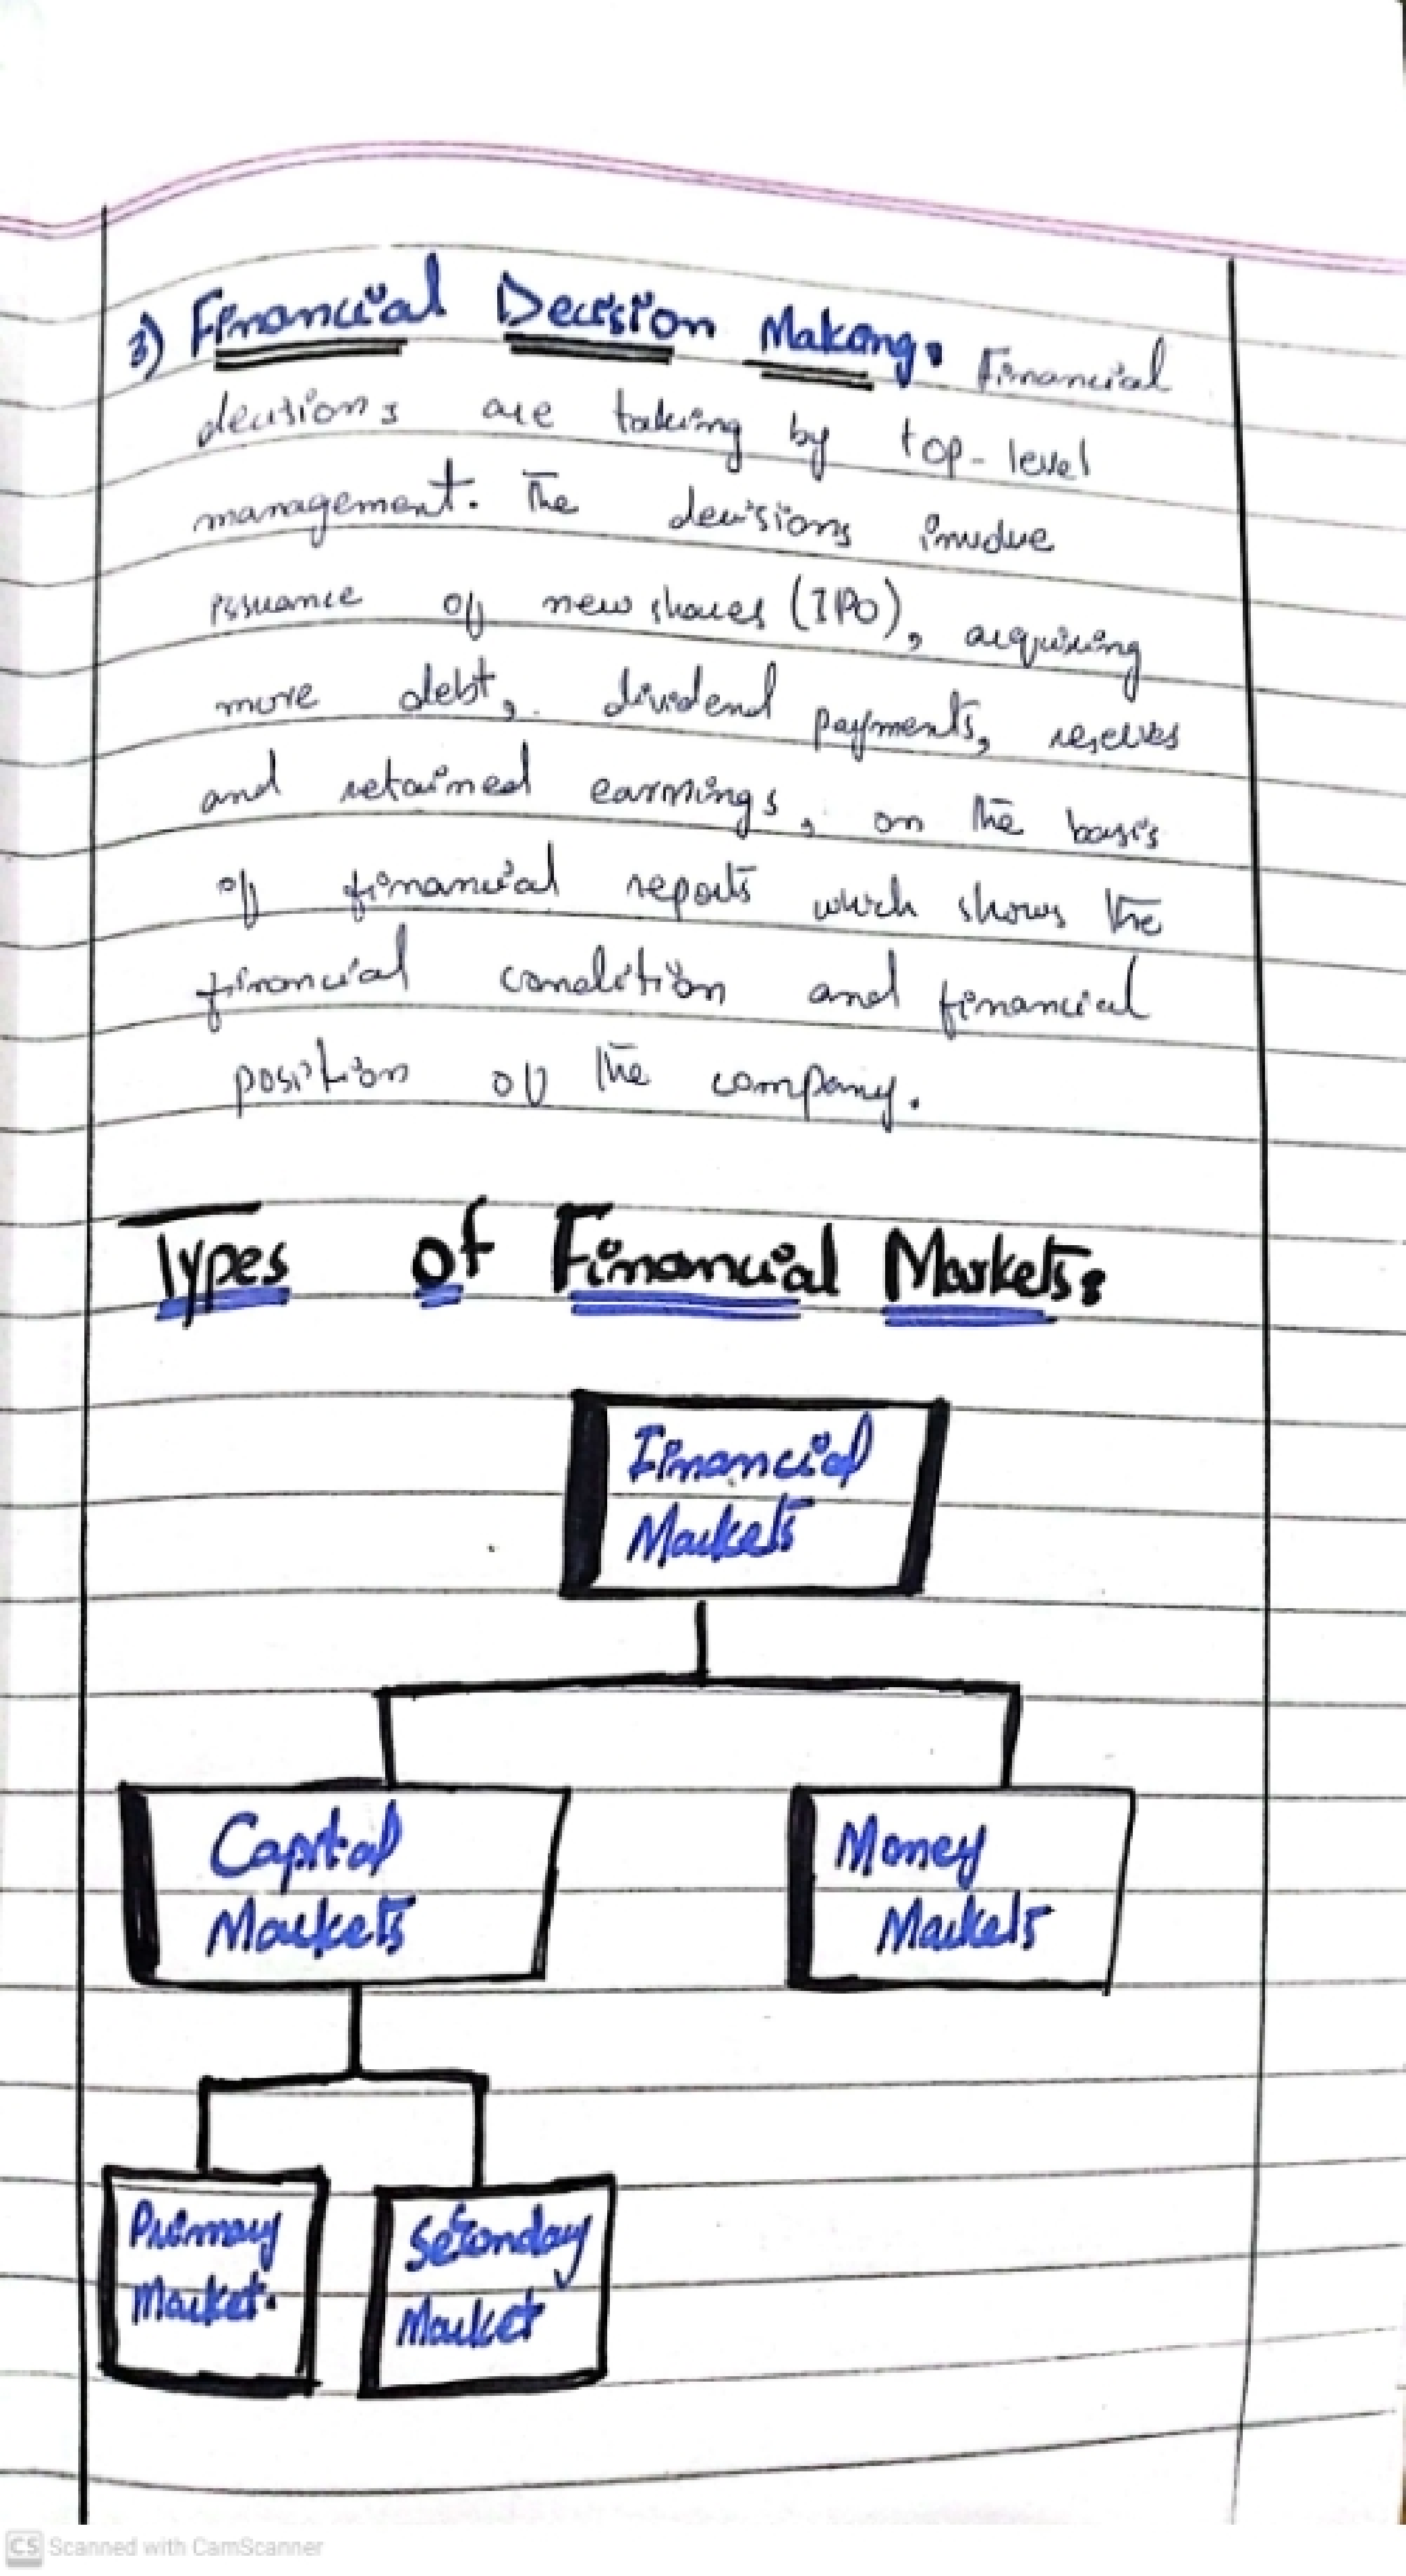 3) Financial Decision Making. Financial
decisions are taking by top-level
management. The decisions involve
issuance of new shares (IPO), acquiring
more debt, dividend payments, reserves
and retained earnings, on the basis
of financial reports which shows the
financial condition and financial
position of the company.
Types of Financial Markets:
Financial
Markets
Capital
Markets
Money
Markets
Primary
Market.
Secondary
Market
CS Scanned with CamScanner